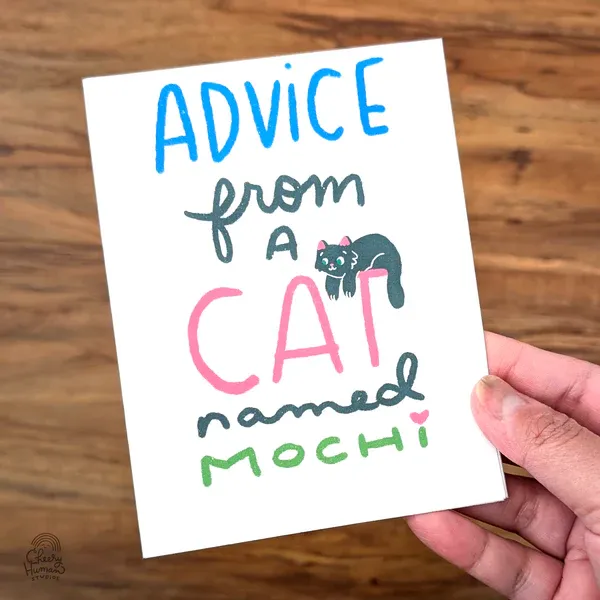 ADViCE
from
A
CAT
named
MOCHi
Cheery
Human
STUDIOS